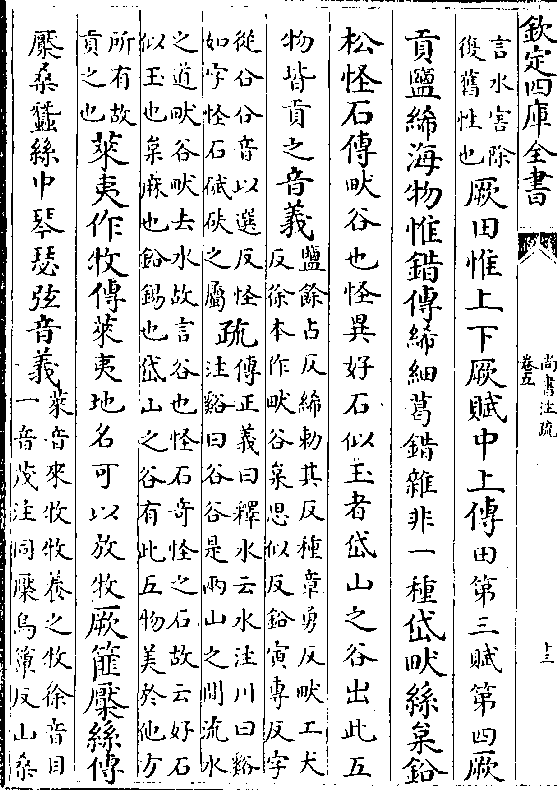 欽定四庫全書
尚書注疏
卷五
十三
言水害除
復舊性也
厥田惟上下厥賦中上傳田第三賦第四厥
貢鹽絺海物惟錯傳絺細葛錯雜非一種岱畎絲枲鉛
松怪石傳畎谷也怪異好石似玉者岱山之谷出此五
物皆貢之音義
鹽餘占反絺勅其反種章勇反畎工犬
反徐本作畎谷枲思似反鉛寅專反字
從㕣㕣音以選反怪
如字怪石碔砆之屬
疏
傳正義曰釋水云水注川曰谿
注谿曰谷谷是兩山之間流水
之道畎谷畎去水故言谷也怪石奇怪之石故云好石
似玉也枲麻也鉛錫也岱山之谷有此五物美於他方
所有故
貢之也
萊夷作牧傳萊夷地名可以放牧厥篚檿絲傳
檿桑蠶絲中琴瑟弦音義
萊音來牧牧養之牧徐音目
一音茂注同檿烏簟反山桑